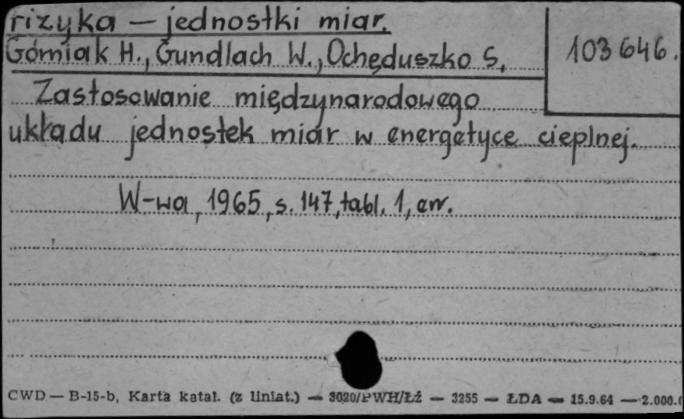 Fizyka — jednostki miar.
Górniak H., Gundlach W., Ochęduszko S.
103646.
Zastosowanie międzynarodowego
układu jednostek miar w energetyce cieplnej.
W-wa, 1965, s. 147, tabl. 1, err.
CWD — B-15-b, Karta katal. (z liniat.) — 3020/PWH/Łż — 3255 — ŁDA — 15.9.64 — 2.000.0